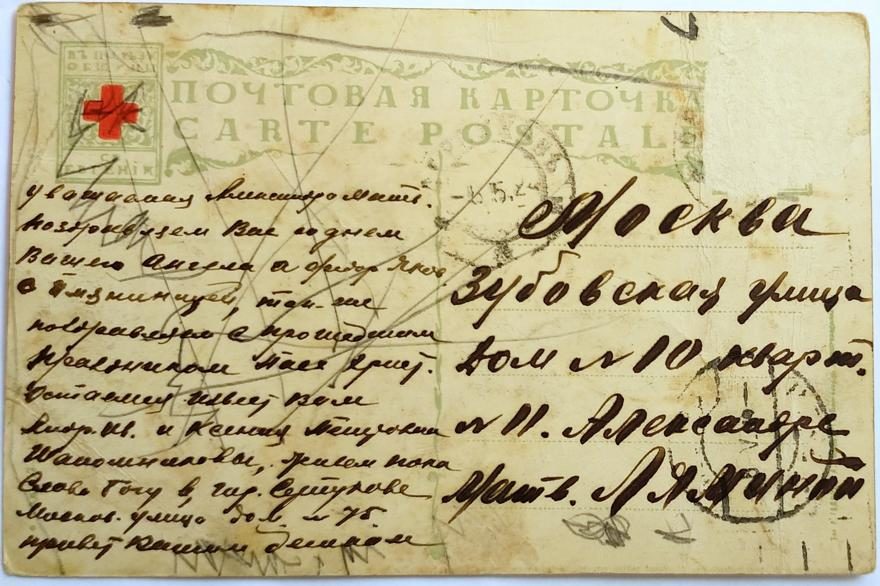 ВЪ ПОЛЬЗУ
ОБЩИНЫ
ЕВГЕНІИ
ПОЧТОВАЯ КАРТОЧКА
CARTE POSTALE
6.5.24
Уважаемая Александра Матв.
поздравляем Вас со днем
Вашего Ангела а Федор Яков
с Имянинницей, так-же
поздравляем с прошедшим
праздником Пасх Христ.
Остаемся извест Вам
Андр. Ив. и Ксения
живем пока
Слава Богу в гор. Серпухове
Москов. улица дом. № 75
привет вашим деткам
Москва
Зубовская улица
дом № 10 кварт.
№ 11. Александре
Матв. Ляминой